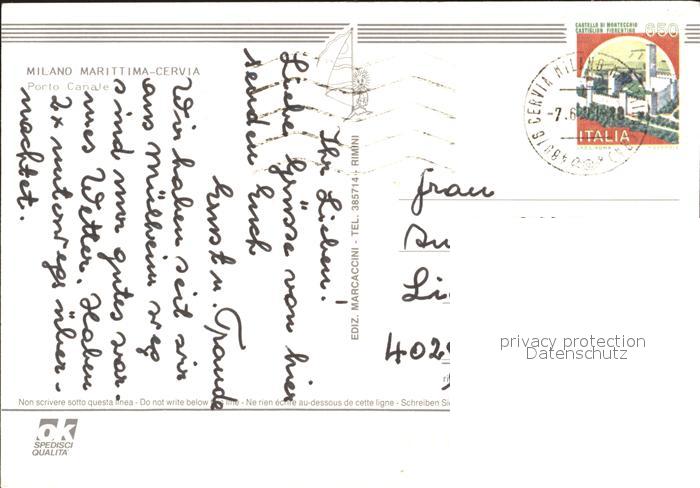 CASTELLO DI MONTECCHIO
CASTIGLION FIORENTINO
650
ITALIA
48016 CERVIA MILANO
-7.6
MILANO MARITTIMA-CERVIA
Porto Canale
Ihr Lieben!
Liebe Grüsse von hier
senden Euch
Ernst u. Traude
Wir haben seit wir
aus Mülheim weg
sind nur gutes war-
mes Wetter. Haben
2x unterwegs über-
nachtet.
EDIZ. MARCACCINI - TEL. 385714 - RIMINI
Frau
Li
402
privacy protection
Datenschutz
Non scrivere sotto questa linea - Do not write below the line - Ne rien écrire au-dessous de cette ligne - Schreiben Si
ok
SPEDISCI
QUALITA'